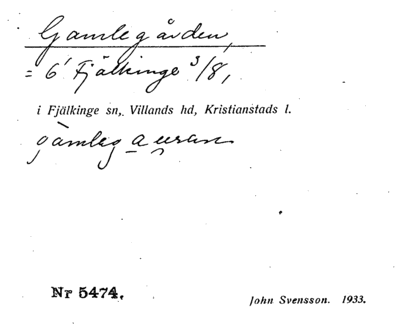 Gamlegården,
= 6' Fjälkinge 3/8,
i Fjälkinge sn, Villands hd, Kristianstads l.
gàmleg
Nr 5474.
John Svensson. 1933.